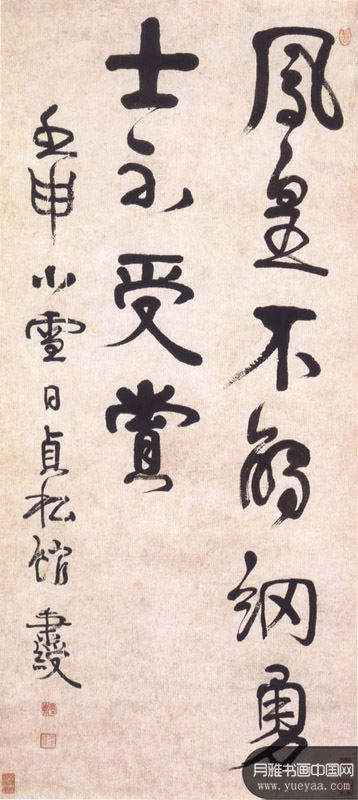 鳳皇不勇
士不受賞
壬申小雪日貞松館
月雅书画中国网
www.yueyaa.com